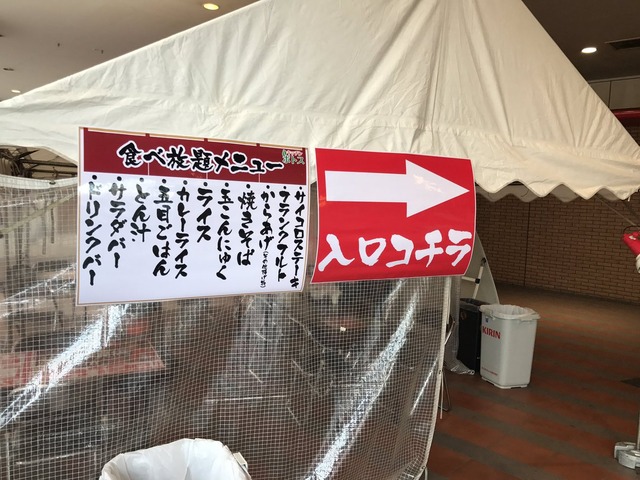 食べ放題メニュー
・サイコロステーキ
・フランクフルト
・からあげ
・焼きそば
・玉こんにゃく
・ライス
・カレーライス
・五目ごはん
・とん汁
・サラダバー
・ドリンクバー
入口コチラ
KIRIN